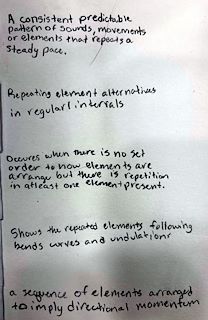 A consistent predictable
pattern of sounds, movements
or elements that repeats a
steady pace.
Repeating element alternatives
in regular intervals
Occures when there is no set
order to how elements are
arrange but there is repetition
in atleast one element present.
Shows the repeated elements following
bends curves and undulations
a sequence of elements arranged
to imply directional momentum